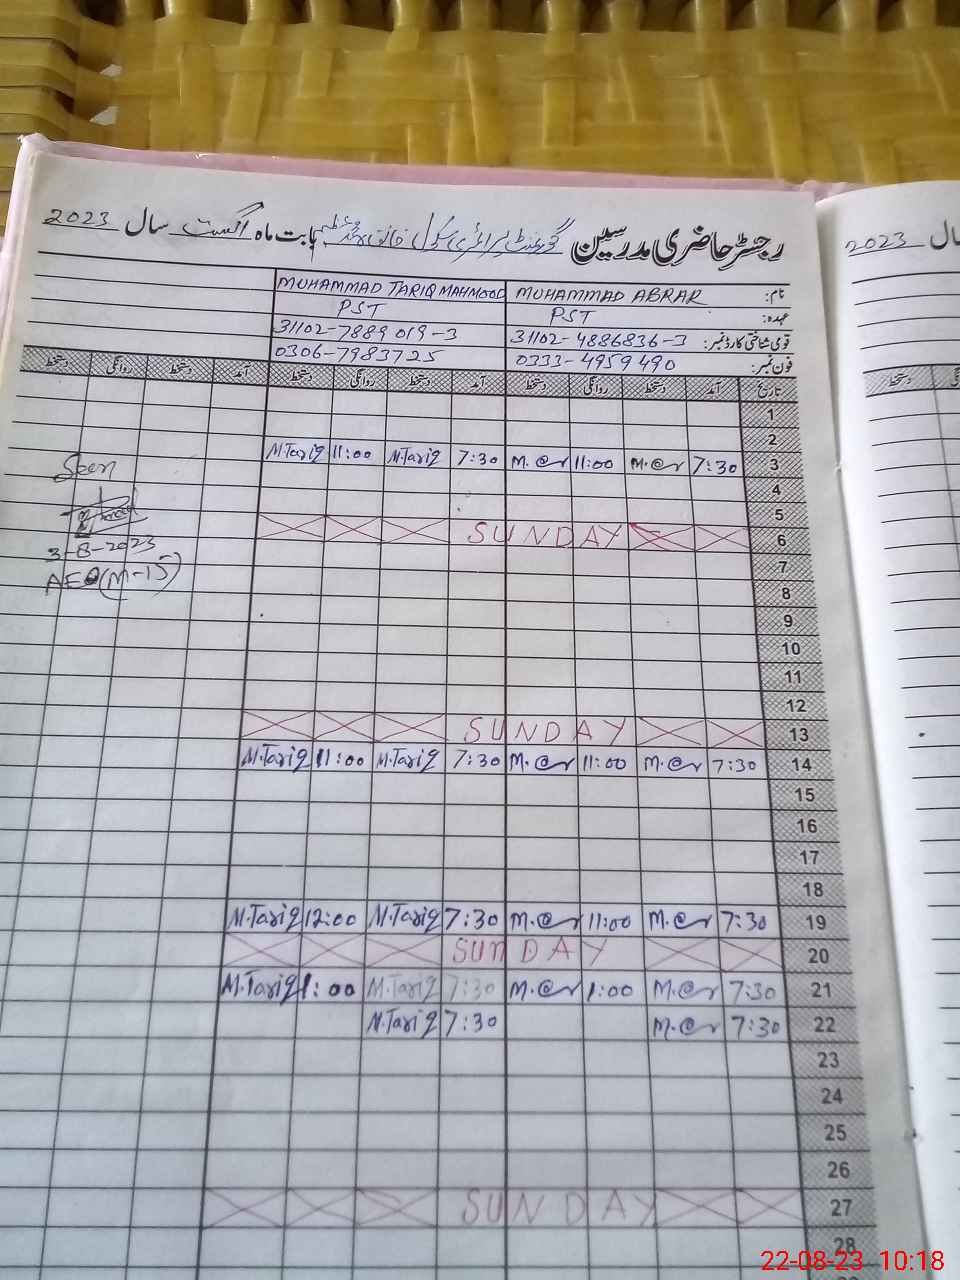 رجسٹر حاضری مدرسین گورنمنٹ پرائمری سکول بابت ماہ اگست سال 2023
2023 سال
نام: MUHAMMAD ABRAR MUHAMMAD TARIQ MAHMOOD
عہدہ: PST PST
قومی شناختی کارڈ نمبر: 31102-4886836-3 31102-7889019-3
فون نمبر: 0333-4959490 0306-7983725
تاریخ آمد دستخط روانگی دستخط آمد دستخط روانگی دستخط آمد دستخط روانگی دستخط
دستخط
1
2
3 7:30 11:00 7:30 M.Tariq 11:00 M.Tariq
Seen
4
5
6 SUNDAY
3-8-2023
7
AEO (M-15)
8
9
10
11
12
13 SUNDAY
14 7:30 11:00 7:30 M.Tariq 11:00 M.Tariq
15
16
17
18
19 7:30 11:00 7:30 M.Tariq 12:00 M.Tariq
20 SUNDAY
21 7:30 1:00 7:30 M.Tariq 1:00 M.Tariq
22 7:30 7:30 M.Tariq
23
24
25
26
27 SUNDAY
28
22-08-23 10:18